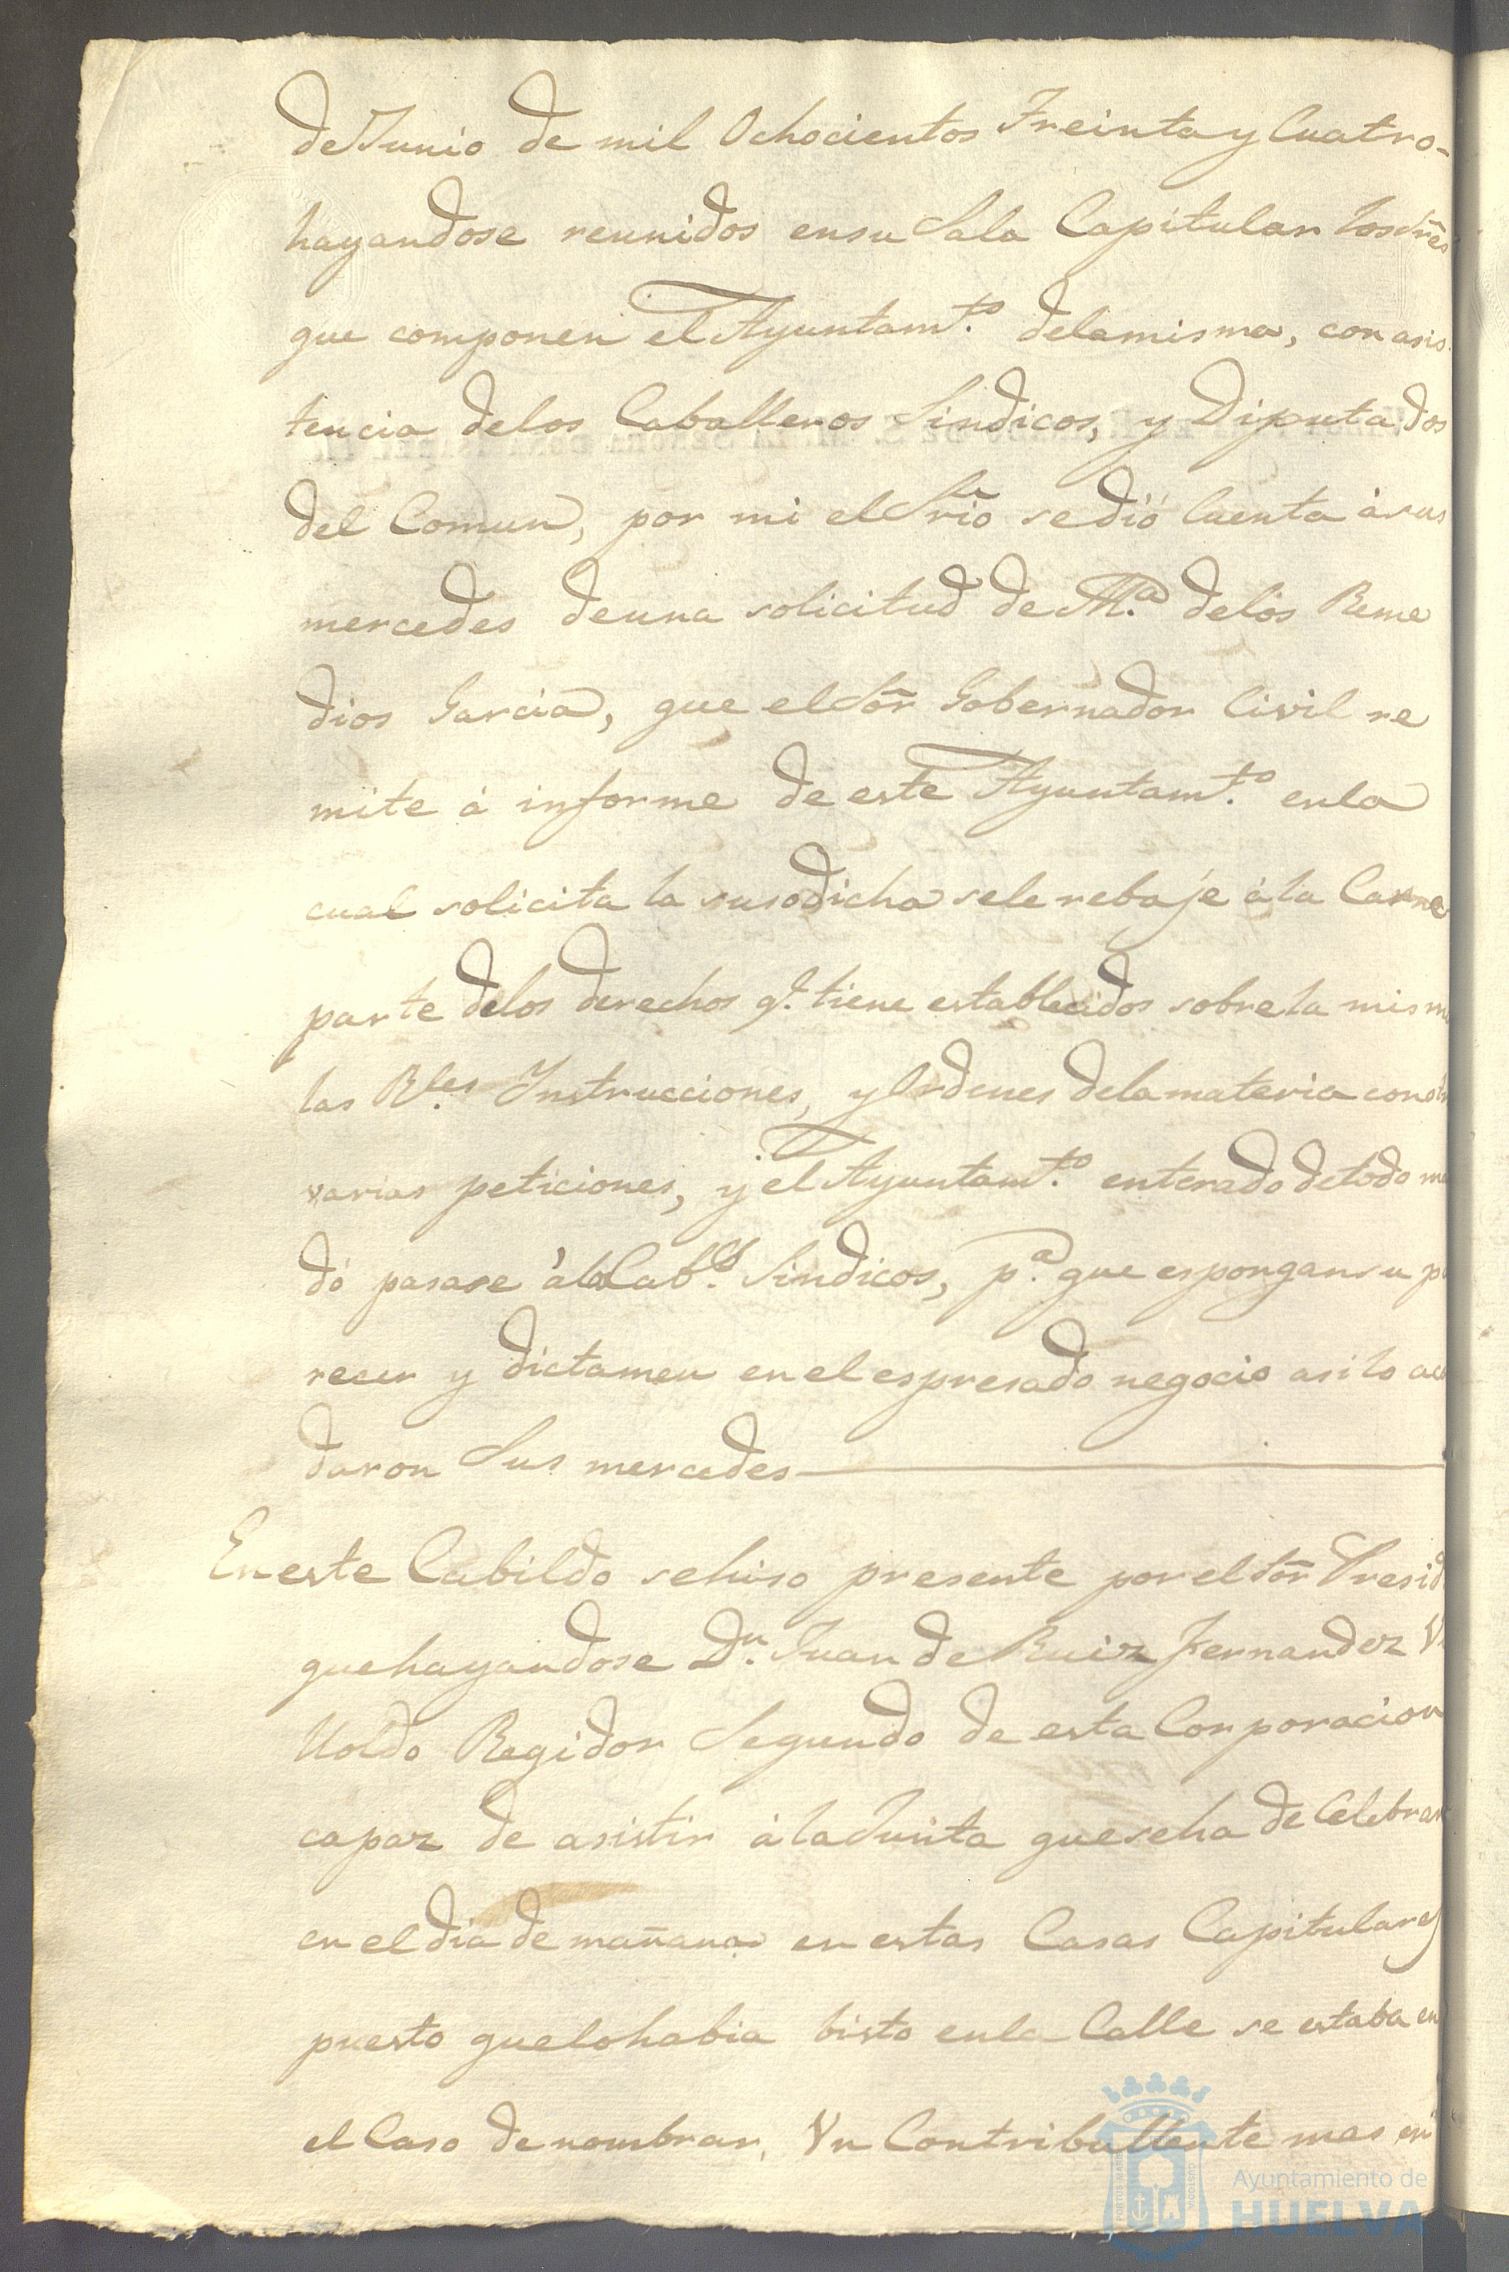 de Junio de mil Ochocientos Treinta y Cuatro-
hayandose reunidos en su Sala Capitular los Sres
que componen el Ayuntamto. de la misma, con asis
tencia de los Caballeros Sindicos, y Diputados
del Comun, por mi el Srio se dió Cuenta á sus
mercedes de una solicitud de Ma. de los Reme
dios Garcia, que el Sor Gobernador Civil re
mite á informe de este Ayuntamto. en la
cual solicita la susodicha se le rebaje á la Carne
parte de los derechos q.e tiene establecidos sobre la mism
las Rles. Instrucciones, y Ordenes de la materia con otr
varias peticiones, y el Ayuntamto. enterado de todo ma
dó pasase á los Cabos. Sindicos, pa. que espongan su p
recer y dictamen en el espresado negocio asi lo aco
daron Sus mercedes
En este Cabildo se hiso presente por el Sor Presid
que hayandose Dn. Juan de Ruiz Fernandez
Regidor Segundo de esta Corporacion
capaz de asistir á la Junta que se ha de Celebrar
en el dia de mañana en estas Casas Capitulares
puesto que lo habia bisto en la Calle se estaba en
el Caso de nombrar, Un Contribullente mas en
Ayuntamiento de
HUELVA